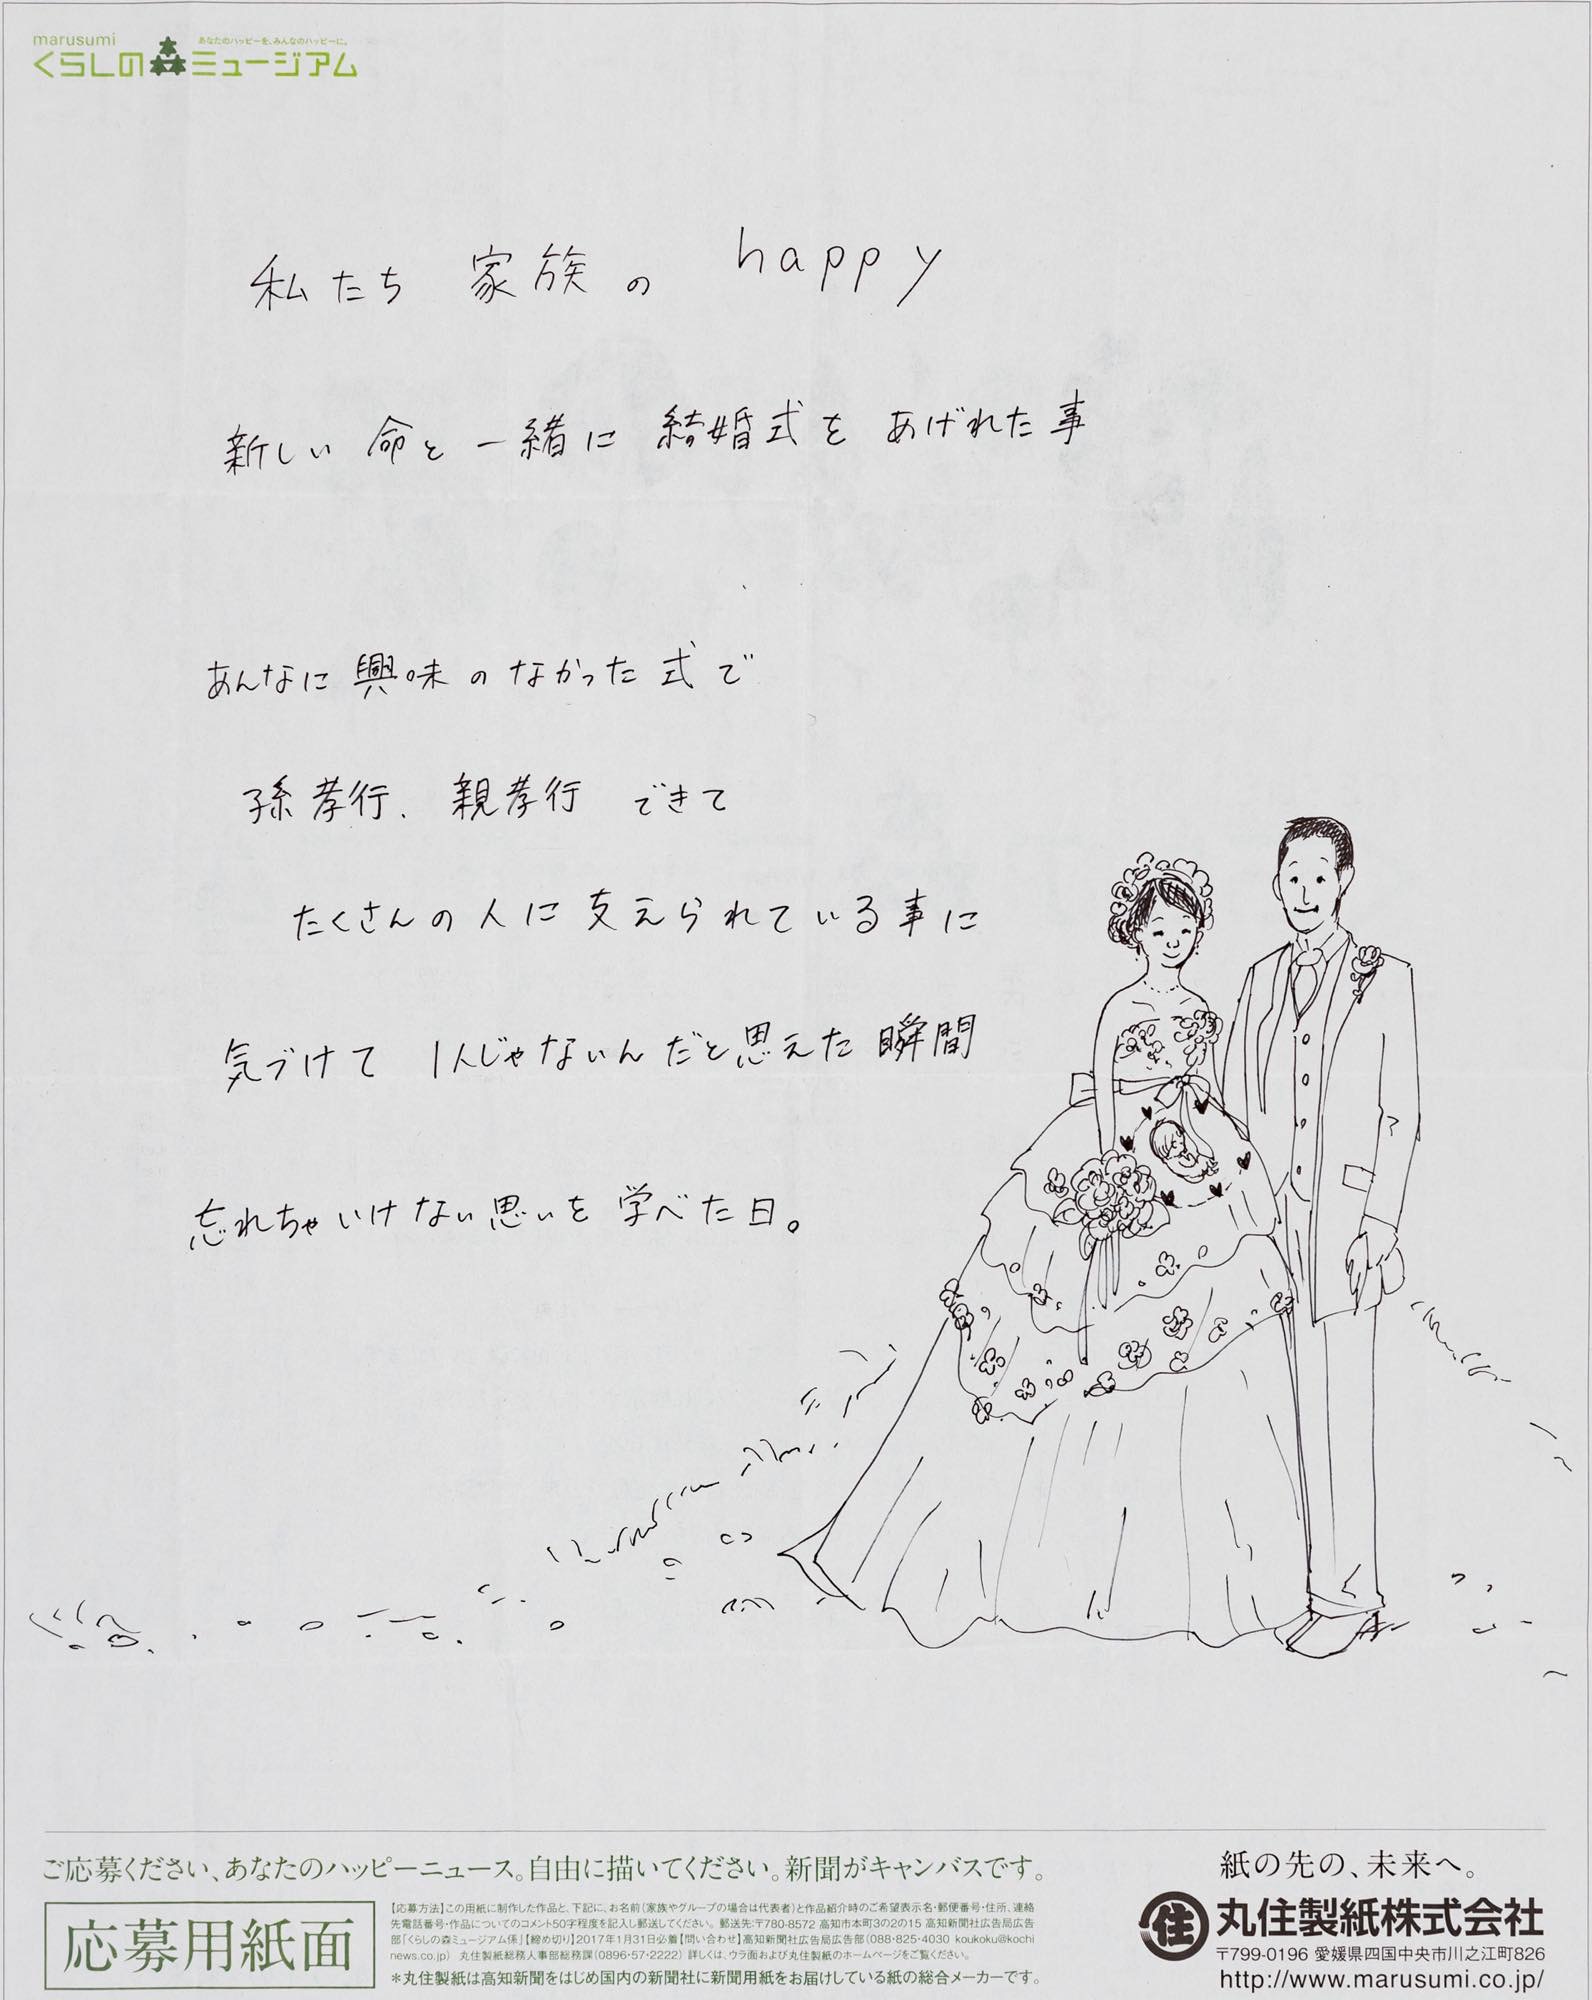 marusumi
あなたのハッピーを、みんなのハッピーに。
くらしの森ミュージアム
私たち 家族の happy
新しい 命と 一緒に 結婚式を あげれた事
あんなに 興味 の なかった 式で
孫孝行、親孝行 できて
たくさんの 人に 支えられている事に
気づけて 1人じゃないんだと思えた 瞬間
忘れちゃいけない思いを 学べた日。
ご応募ください、あなたのハッピーニュース。自由に描いてください。新聞がキャンバスです。
応募用紙面
【応募方法】この用紙に制作した作品と、下記に、お名前(家族やグループの場合は代表者)と作品紹介時のご希望表示名・郵便番号・住所、連絡
先電話番号・作品についてのコメント50字程度を記入し郵送してください。郵送先:〒780-8572 高知市本町3の2の15 高知新聞社広告局広告
部「くらしの森ミュージアム係」【締め切り】2017年1月31日必着【問い合わせ】高知新聞社広告局広告部(088・825・4030 koukoku@kochi
news.co.jp) 丸住製紙総務人事部総務課(0896・57・2222) 詳しくは、ウラ面および丸住製紙のホームページをご覧ください。
＊丸住製紙は高知新聞をはじめ国内の新聞社に新聞用紙をお届けしている紙の総合メーカーです。
紙の先の、未来へ。
住 丸住製紙株式会社
〒799-0196 愛媛県四国中央市川之江町826
http://www.marusumi.co.jp/